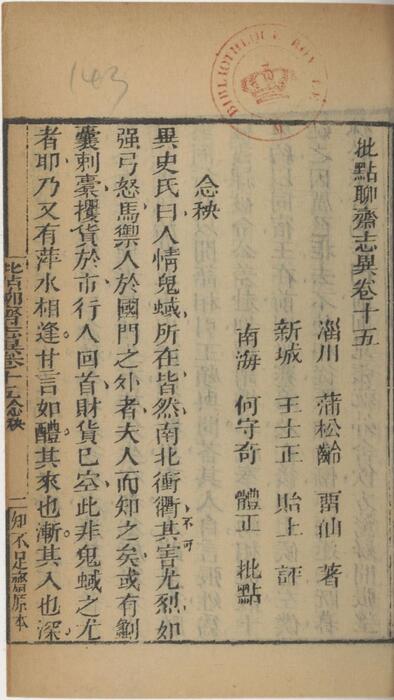 143
批點聊齋志異卷十五
淄川 蒲松齡 畱仙 著
新城 王士正 貽上 評
南海 何守奇 體正 批點
念秧
異史氏曰人情鬼蜮所在皆然南北衝衢其害尤烈如
不可
强弓怒馬禦人於國門之外者夫人而知之矣或有劙
囊刺橐攫貨於市行人回首財貨已空此非鬼蜮之尤
者耶乃又有萍水相逢甘言如醴其來也漸其入也深
批點聊齋志異卷十五念秧
知不足齋原本